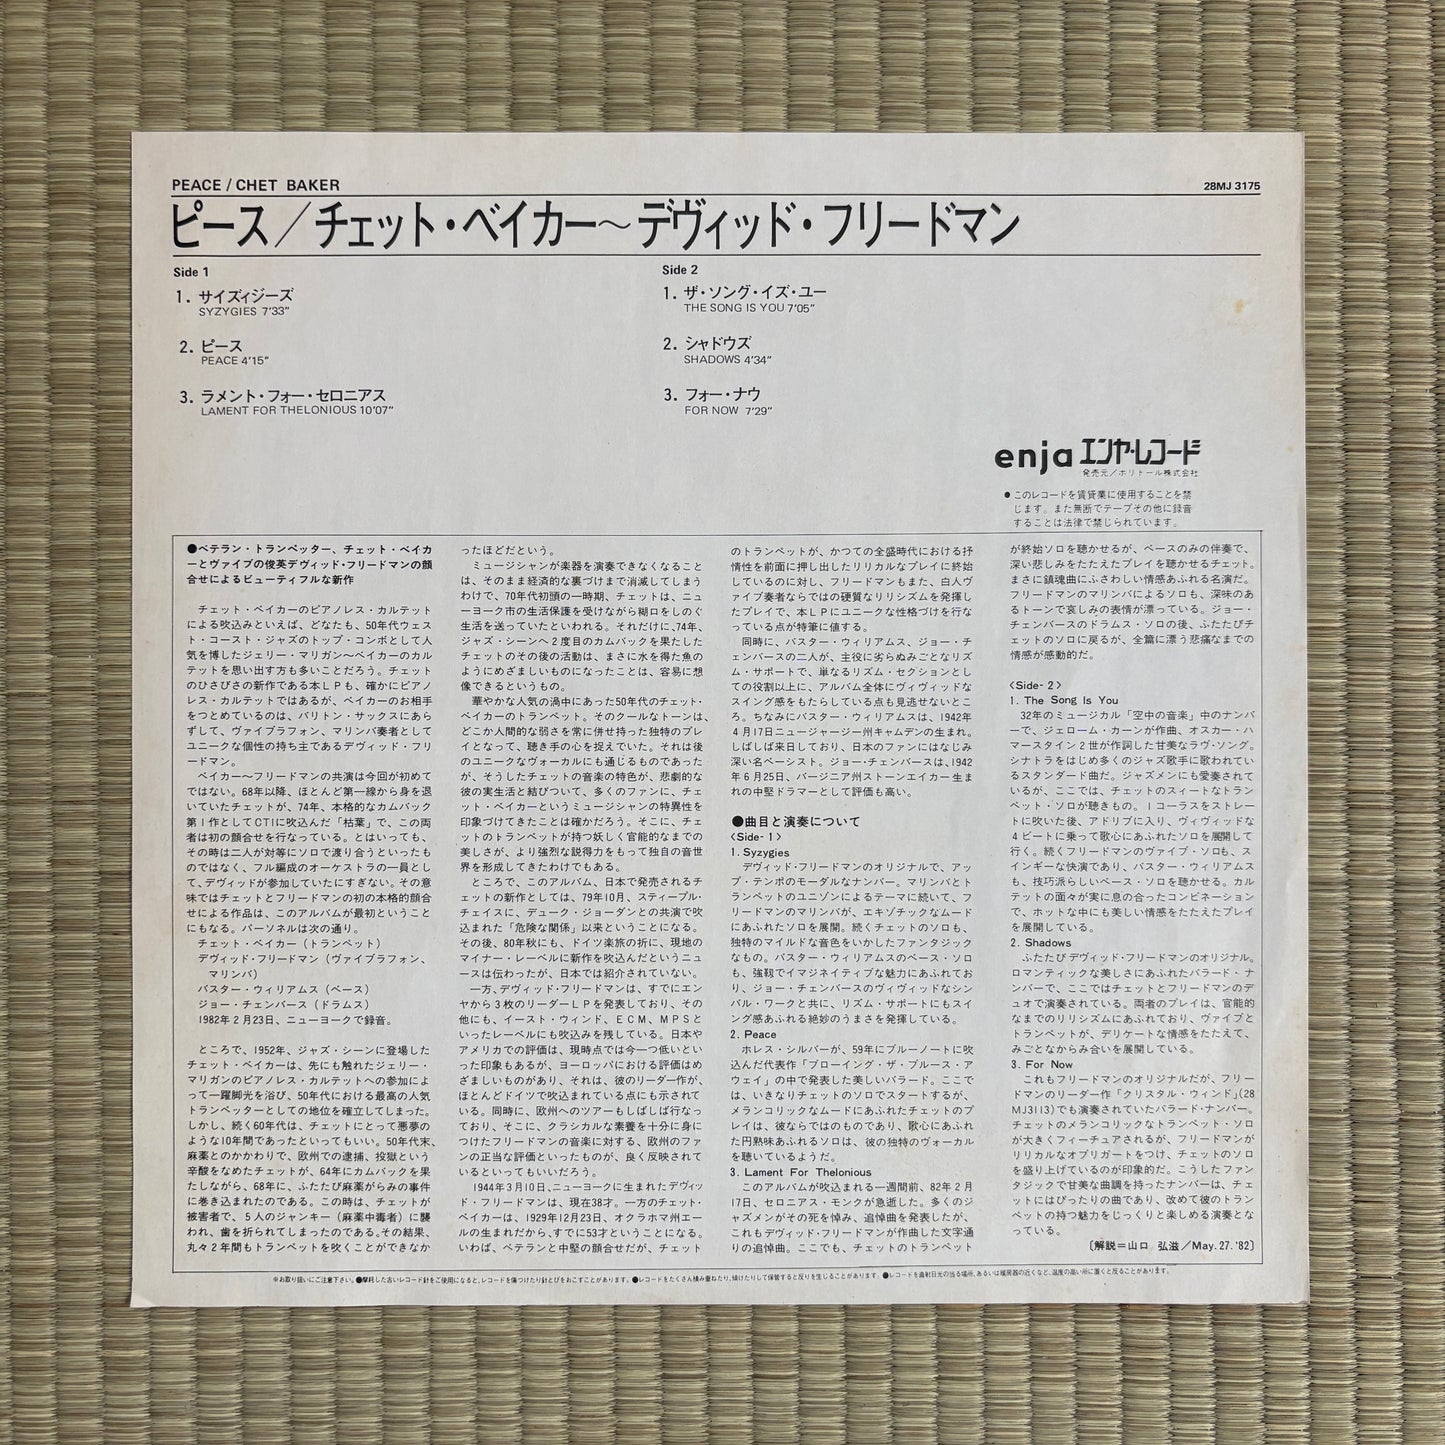 PEACE / CHET BAKER
28MJ 3175
ピース／チェット・ベイカー〜デヴィッド・フリードマン
Side 1
1. サイズィジーズ
SYZYGIES 7'33"
2. ピース
PEACE 4'15"
3. ラメント・フォー・セロニアス
LAMENT FOR THELONIOUS 10'07"
Side 2
1. ザ・ソング・イズ・ユー
THE SONG IS YOU 7'05"
2. シャドウズ
SHADOWS 4'34"
3. フォー・ナウ
FOR NOW 7'29"
enja エンヤ・レコード
発売元／ポリドール株式会社
●このレコードを賃貸業に使用することを禁
じます。また無断でテープその他に録音
することは法律で禁じられています。
●ベテラン・トランペッター、チェット・ベイカ
ーとヴァイブの俊英デヴィッド・フリードマンの顔
合せによるビューティフルな新作
チェット・ベイカーのピアノレス・カルテット
による吹込みといえば、どなたも、50年代ウェス
ト・コースト・ジャズのトップ・コンボとして人
気を博したジェリー・マリガン〜ベイカーのカル
テットを思い出す方も多いことだろう。チェット
のひさびさの新作である本ＬＰも、確かにピアノ
レス・カルテットではあるが、ベイカーのお相手
をつとめているのは、バリトン・サックスにあら
ずして、ヴァイブラフォン、マリンバ奏者として
ユニークな個性の持ち主であるデヴィッド・フリ
ードマン。
ベイカー〜フリードマンの共演は今回が初めて
ではない。68年以降、ほとんど第一線から身を退
いていたチェットが、74年、本格的なカムバック
第１作としてCTIに吹込んだ「枯葉」で、この両
者は初の顔合せを行なっている。とはいっても、
その時は二人が対等にソロで渡り合うといったも
のではなく、フル編成のオーケストラの一員とし
て、デヴィッドが参加していたにすぎない。その意
味ではチェットとフリードマンの初の本格的顔合
せによる作品は、このアルバムが最初ということ
にもなる。パーソネルは次の通り。
チェット・ベイカー（トランペット）
デヴィッド・フリードマン（ヴァイブラフォン、
マリンバ）
バスター・ウィリアムス（ベース）
ジョー・チェンバース（ドラムス）
1982年２月23日、ニューヨークで録音。
ところで、1952年、ジャズ・シーンに登場した
チェット・ベイカーは、先にも触れたジェリー・
マリガンのピアノレス・カルテットへの参加によ
って一躍脚光を浴び、50年代における最高の人気
トランペッターとしての地位を確立してしまった。
しかし、続く60年代は、チェットにとって悪夢の
ような10年間であったといってもいい。50年代末、
麻薬とのかかわりで、欧州での逮捕、投獄という
辛酸をなめたチェットが、64年にカムバックを果
たしながら、68年に、ふたたび麻薬がらみの事件
に巻き込まれたのである。この時は、チェットが
被害者で、５人のジャンキー（麻薬中毒者）に襲
われ、歯を折られてしまったのである。その結果、
丸々２年間もトランペットを吹くことができなか
ったほどだという。
ミュージシャンが楽器を演奏できなくなること
は、そのまま経済的な裏づけまで消滅してしまう
わけで、70年代初頭の一時期、チェットは、ニュ
ーヨーク市の生活保護を受けながら糊口をしのぐ
生活を送っていたといわれる。それだけに、74年、
ジャズ・シーンへ２度目のカムバックを果たした
チェットのその後の活動は、まさに水を得た魚の
ようにめざましいものになったことは、容易に想
像できるというもの。
華やかな人気の渦中にあった50年代のチェット・
ベイカーのトランペット。そのクールなトーンは、
どこか人間的な弱さを常に併せ持った独特のプレ
イとなって、聴き手の心を捉えていた。それは後
のユニークなヴォーカルにも通じるものであった
が、そうしたチェットの音楽の特色が、悲劇的な
彼の実生活と結びついて、多くのファンに、チェ
ット・ベイカーというミュージシャンの特異性を
印象づけてきたことは確かだろう。そこに、チェ
ットのトランペットが持つ妖しく官能的なまでの
美しさが、より強烈な説得力をもって独自の音世
界を形成してきたわけでもある。
ところで、このアルバム、日本で発売されるチェ
ットの新作としては、79年10月、スティープル・
チェイスに、デューク・ジョーダンとの共演で吹
込まれた「危険な関係」以来ということになる。
その後、80年秋にも、ドイツ楽旅の折に、現地の
マイナー・レーベルに新作を吹込んだというニュ
ースは伝わったが、日本では紹介されていない。
一方、デヴィッド・フリードマンは、すでにエン
ヤから３枚のリーダーＬＰを発表しており、その
他にも、イースト・ウィンド、ＥＣＭ、ＭＰＳと
いったレーベルにも吹込みを残している。日本や
アメリカでの評価は、現時点では今一つ低いとい
った印象もあるが、ヨーロッパにおける評価はめ
ざましいものがあり、それは、彼のリーダー作が、
ほとんどドイツで吹込まれている点にも示されて
いる。同時に、欧州へのツアーもしばしば行なっ
ており、そこに、クラシカルな素養を十分に身に
つけたフリードマンの音楽に対する、欧州のファ
ンの正当な評価といったものが、良く反映されて
いるといってもいいだろう。
1944年３月10日、ニューヨークに生まれたデヴィッ
ド・フリードマンは、現在38才。一方のチェット・
ベイカーは、1929年12月23日、オクラホマ州エー
ルの生まれだから、すでに53才ということになる。
いわば、ベテランと中堅の顔合せだが、チェット
のトランペットが、かつての全盛時代における抒
情性を前面に押し出したリリカルなプレイに終始
しているのに対し、フリードマンもまた、白人ヴ
ァイブ奏者ならではの硬質なリリシズムを発揮し
たプレイで、本ＬＰにユニークな性格づけを行な
っている点が特筆に値する。
同時に、バスター・ウィリアムス、ジョー・チ
ェンバースの二人が、主役に劣らぬみごとなリズ
ム・サポートで、単なるリズム・セクションとし
ての役割以上に、アルバム全体にヴィヴィッドな
スイング感をもたらしている点も見逃せないとこ
ろ。ちなみにバスター・ウィリアムスは、1942年
４月17日ニュージャージー州キャムデンの生まれ。
しばしば来日しており、日本のファンにはなじみ
深い名ベーシスト。ジョー・チェンバースは、1942
年６月25日、バージニア州ストーンエイカー生ま
れの中堅ドラマーとして評価も高い。
●曲目と演奏について
〈Side-1〉
1. Syzygies
デヴィッド・フリードマンのオリジナルで、アッ
プ・テンポのモーダルなナンバー。マリンバとト
ランペットのユニゾンによるテーマに続いて、フ
リードマンのマリンバが、エキゾチックなムード
にあふれたソロを展開。続くチェットのソロも、
独特のマイルドな音色をいかしたファンタジック
なもの。バスター・ウィリアムスのベース・ソロ
も、強靱でイマジネイティブな魅力にあふれてお
り、ジョー・チェンバースのヴィヴィッドなシン
バル・ワークと共に、リズム・サポートにもスイ
ング感あふれる絶妙のうまさを発揮している。
2. Peace
ホレス・シルバーが、59年にブルーノートに吹
込んだ代表作「ブローイング・ザ・ブルース・ア
ウェイ」の中で発表した美しいバラード。ここで
は、いきなりチェットのソロでスタートするが、
メランコリックなムードにあふれたチェットのプ
レイは、彼ならではのものであり、歌心にあふれ
た円熟味あふれるソロは、彼の独特のヴォーカル
を聴いているようだ。
3. Lament For Thelonious
このアルバムが吹込まれる一週間前、82年２月
17日、セロニアス・モンクが急逝した。多くのジ
ャズメンがその死を悼み、追悼曲を発表したが、
これもデヴィッド・フリードマンが作曲した文字通
りの追悼曲。ここでも、チェットのトランペット
が終始ソロを聴かせるが、ベースのみの伴奏で、
深い悲しみをたたえたプレイを聴かせるチェット。
まさに鎮魂曲にふさわしい情感あふれる名演だ。
フリードマンのマリンバによるソロも、深味のあ
るトーンで哀しみの表情が漂っている。ジョー・
チェンバースのドラムス・ソロの後、ふたたびチ
ェットのソロに戻るが、全篇に漂う悲痛なまでの
情感が感動的だ。
〈Side-2〉
1. The Song Is You
32年のミュージカル「空中の音楽」中のナンバ
ーで、ジェローム・カーンが作曲、オスカー・ハ
マースタイン２世が作詞した甘美なラヴ・ソング。
シナトラをはじめ多くのジャズ歌手に歌われてい
るスタンダード曲だ。ジャズメンにも愛奏されて
いるが、ここでは、チェットのスィートなトラン
ペット・ソロが聴きもの。１コーラスをストレー
トに吹いた後、アドリブに入り、ヴィヴィッドな
４ビートに乗って歌心にあふれたソロを展開して
行く。続くフリードマンのヴァイブ・ソロも、ス
インギーな快演であり、バスター・ウィリアムス
も、技巧派らしいベース・ソロを聴かせる。カル
テットの面々が実に息の合ったコンビネーション
で、ホットな中にも美しい情感をたたえたプレイ
を展開している。
2. Shadows
ふたたびデヴィッド・フリードマンのオリジナル。
ロマンティックな美しさにあふれたバラード・ナ
ンバーで、ここではチェットとフリードマンのデ
ュオで演奏されている。両者のプレイは、官能的
なまでのリリシズムにあふれており、ヴァイブと
トランペットが、デリケートな情感をたたえて、
みごとなからみ合いを展開している。
3. For Now
これもフリードマンのオリジナルだが、フリー
ドマンのリーダー作「クリスタル・ウィンド」(28
MJ3113)でも演奏されていたバラード・ナンバー。
チェットのメランコリックなトランペット・ソロ
が大きくフィーチュアされるが、フリードマンが
リリカルなオブリガートをつけ、チェットのソロ
を盛り上げているのが印象的だ。こうしたファン
タジックで甘美な曲調を持ったナンバーは、チェ
ットにはぴったりの曲であり、改めて彼のトラン
ペットの持つ魅力をじっくりと楽しめる演奏とな
っている。
〔解説＝山口 弘滋／May. 27. '82〕
※お取り扱いにご注意下さい。●摩耗した古いレコード針をご使用になると、レコードを傷つけたり針とびをおこすことがあります。●レコードをたくさん積み重ねたり、傾けたりして保管すると反りを生じることがあります。●レコードを直射日光の当る場所、あるいは暖房器の近くなど、温度の高い所に置くと反ることがあります。